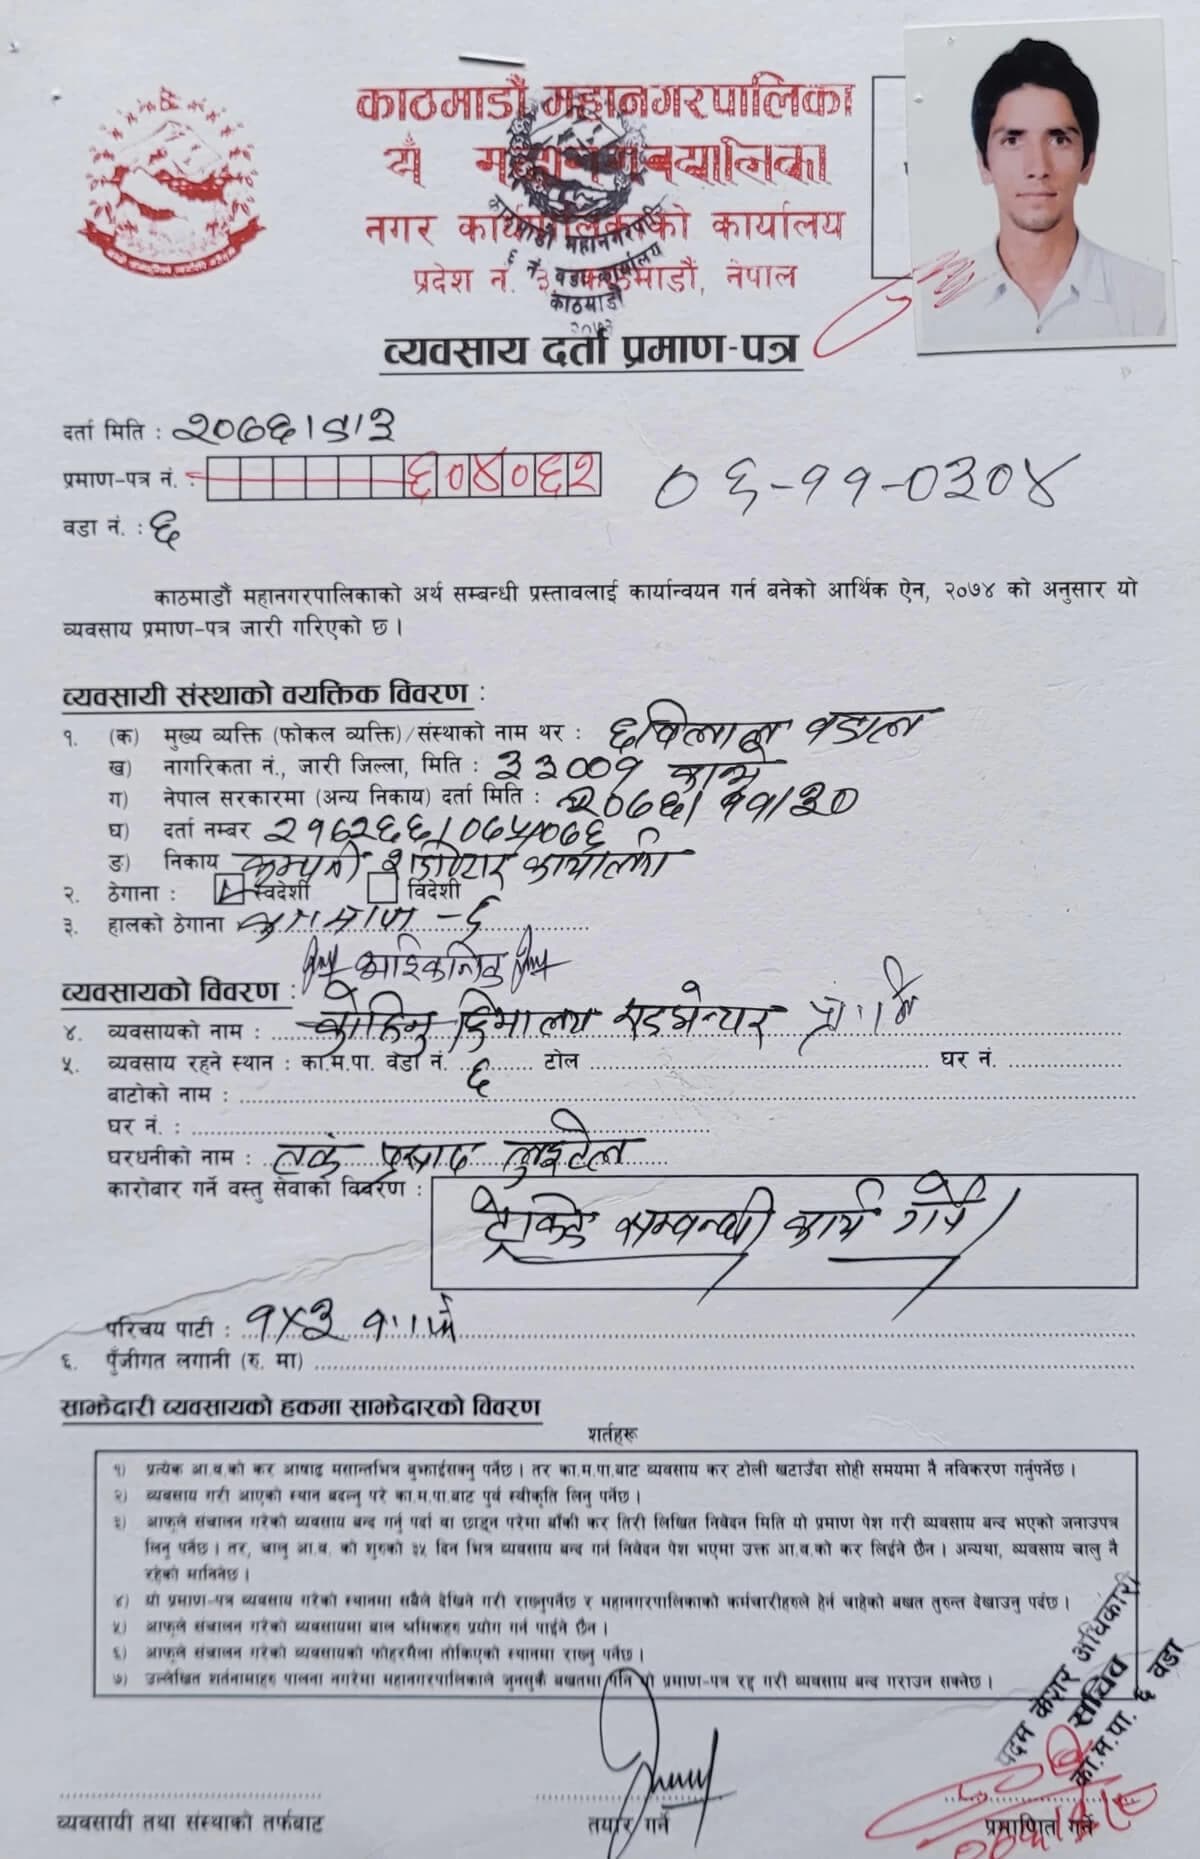 काठमाडौं महानगरपालिका
नगर कार्यपालिकाको कार्यालय
प्रदेश नं. ३, काठमाडौं, नेपाल
काठमाडौं महानगरपालिका
६ नं. वडा कार्यालय
काठमाडौं
२०७३
व्यवसाय दर्ता प्रमाण-पत्र
दर्ता मिति : २०७६।८।३
प्रमाण-पत्र नं. : ६०४०६२ ०६-११-०३०४
वडा नं. : ६
काठमाडौं महानगरपालिकाको अर्थ सम्बन्धी प्रस्तावलाई कार्यान्वयन गर्न बनेको आर्थिक ऐन, २०७४ को अनुसार यो
व्यवसाय प्रमाण-पत्र जारी गरिएको छ ।
व्यवसायी संस्थाको वयक्तिक विवरण :
१. (क) मुख्य व्यक्ति (फोकल व्यक्ति)/संस्थाको नाम थर : छविलाल वडाल
ख) नागरिकता नं., जारी जिल्ला, मिति : ३३००१
ग) नेपाल सरकारमा (अन्य निकाय) दर्ता मिति : २०७६। ११।३०
घ) दर्ता नम्बर २१६२६६।०७५।०७६
ङ) निकाय कम्पनी रजिष्टार कार्यालय
२. ठेगाना : स्वदेशी विदेशी
३. हालको ठेगाना का म पा - ६
आइकनिक
व्यवसायको विवरण :
४. व्यवसायको नाम : हिमालय एडभेन्चर प्रा. लि
५. व्यवसाय रहने स्थान : का.म.पा. वडा नं. ६ टोल घर नं.
बाटोको नाम :
घर नं. :
घरधनीको नाम : तर्क प्रसाद लुइटेल
कारोबार गर्ने वस्तु सेवाको विवरण :
ट्रेकिङ सम्वन्धी कार्य गर्ने।
परिचय पाटी : १x३
६. पुँजीगत लगानी (रु. मा)
साझेदारी व्यवसायको हकमा साझेदारको विवरण
शर्तहरू
१) प्रत्येक आ.व.को कर आषाढ मसान्तभित्र बुझाईसक्नु पर्नेछ । तर का.म.पा.बाट व्यवसाय कर टोली खटाउँदा सोही समयमा नै नविकरण गर्नुपर्नेछ ।
२) व्यवसाय गरी आएको स्थान बदल्नु परे का.म.पा.बाट पुर्व स्वीकृति लिनु पर्नेछ ।
३) आफूले संचालन गरेको व्यवसाय बन्द गर्नु पर्दा वा छाड्न परेमा बाँकी कर तिरी लिखित निवेदन मिति यो प्रमाण पेश गरी व्यवसाय बन्द भएको जनाउपत्र
लिनु पर्नेछ । तर, चालु आ.व. को शुरुको ३५ दिन भित्र व्यवसाय बन्द गर्न निवेदन पेश भएमा उक्त आ.व.को कर लिईने छैन । अन्यथा, व्यवसाय चालु नै
रहेको मानिनेछ ।
४) यो प्रमाण-पत्र व्यवसाय गरेको स्थानमा सबैले देखिने गरी राख्नुपर्नेछ र महानगरपालिकाको कर्मचारीहरुले हेर्न चाहेको बखत तुरुन्त देखाउनु पर्दछ ।
५) आफूले संचालन गरेको व्यवसायमा बाल श्रमिकहरु प्रयोग गर्न पाईने छैन ।
६) आफूले संचालन गरेको व्यवसायको फोहरमैला तोकिएको स्थानमा राख्नु पर्नेछ ।
७) उल्लेखित शर्तनामाहरु पालना नगरेमा महानगरपालिकाले जुनसुकै बखतमा पनि यो प्रमाण-पत्र रद्द गरी व्यवसाय बन्द गराउन सक्नेछ ।
पदम केशर अधिकारी
सचिव
का.म.पा. ६ वडा
व्यवसायी तथा संस्थाको तर्फबाट तयार गर्ने प्रमाणित गर्ने